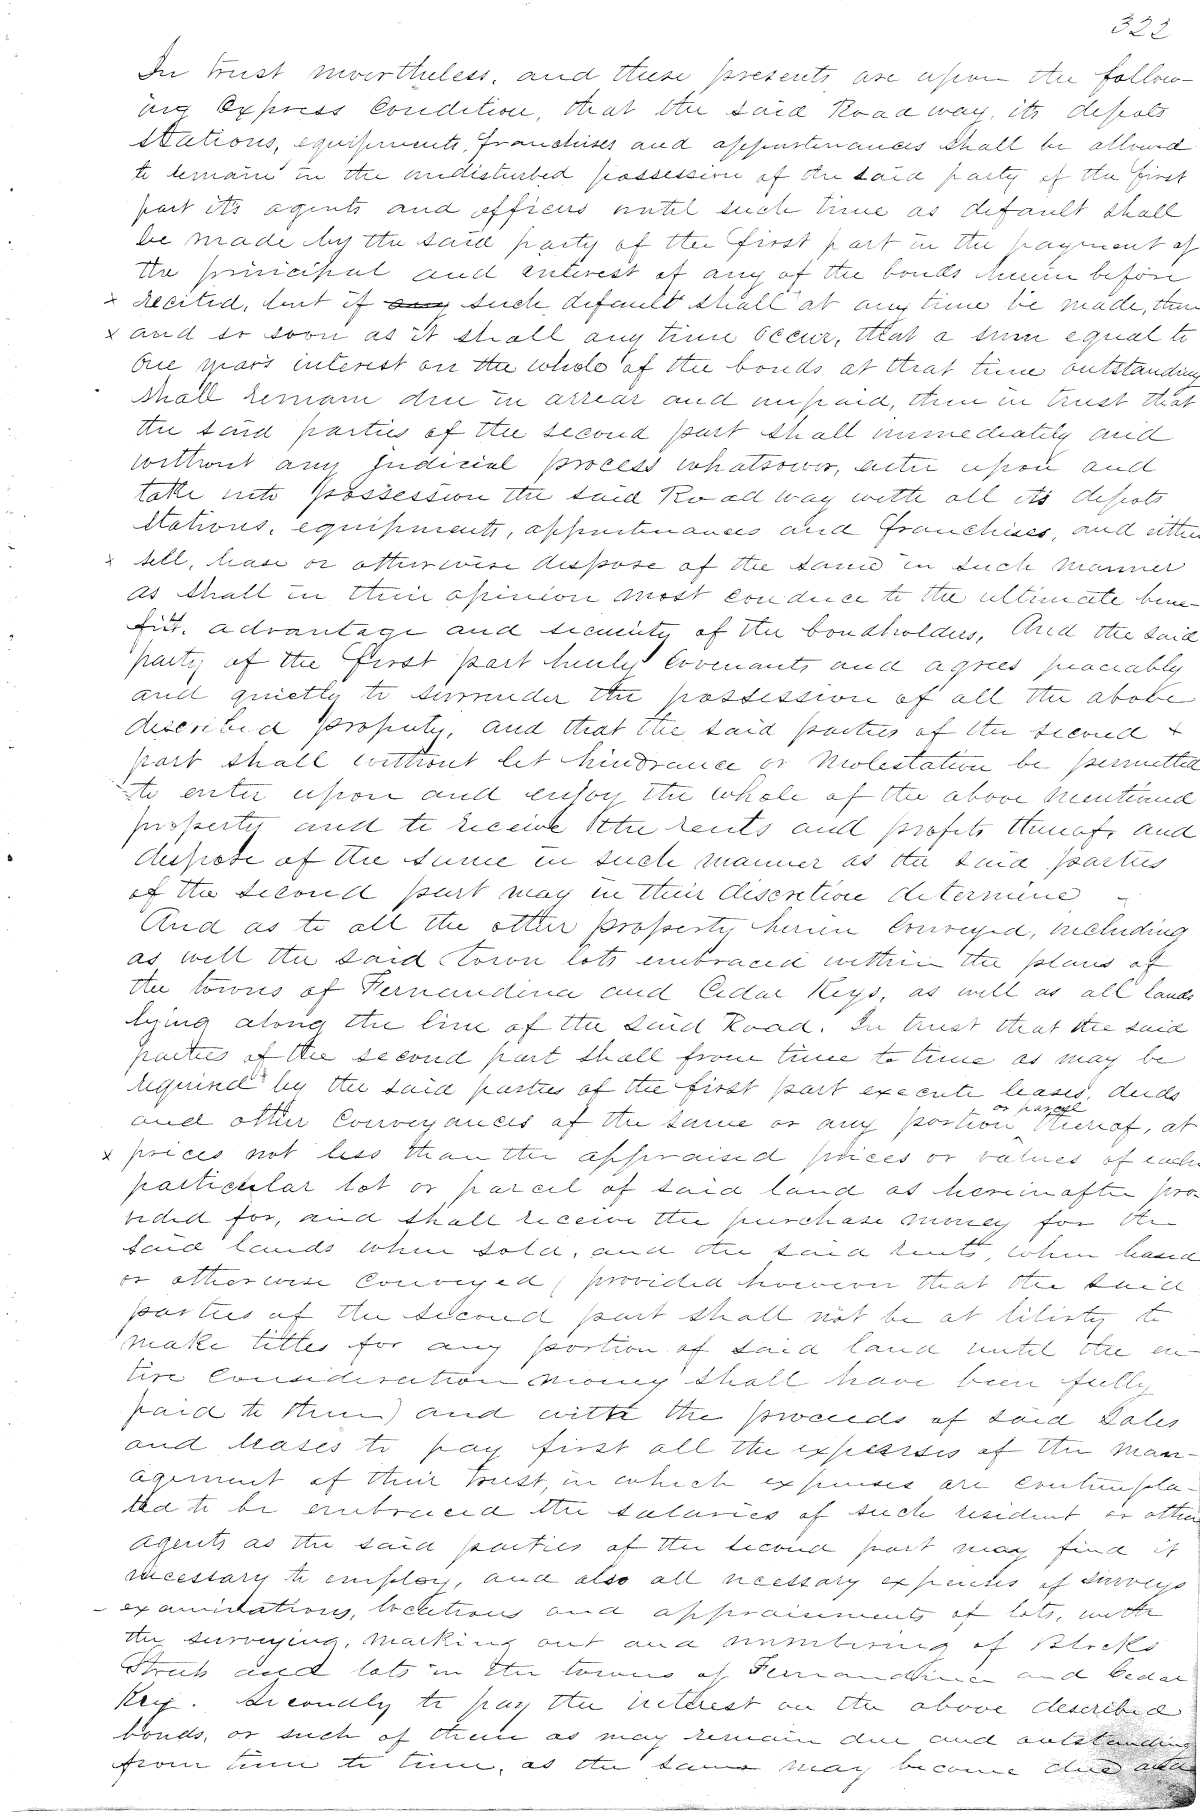 322
In trust nevertheless, and these presents are upon the follow-
ing Express Condition, that the said Road way, its depots
stations, equipments, franchises and appurtenances shall be allowed
to remain in the undisturbed possession of the said party of the first
part its agents and officers until such time as default shall
be made by the said party of the first part in the payment of
the principal and interest of any of the bonds herein before
x recited, but if any such default shall at any time be made, then
x and so soon as it shall any time occur, that a sum equal to
One years interest on the whole of the bonds at that time outstanding
shall remain due in arrear and unpaid, then in trust that
the said parties of the second part shall immediately and
without any judicial process whatsoever, enter upon and
take into possession the said Road way with all its depots
stations, equipments, appurtenances and franchises, and either
x sell, lease or otherwise dispose of the same in such manner
as shall in their opinion most conduce to the ultimate bene-
fit. advantage and security of the bondholders, And the said
party of the first part hereby Covenants and agrees peaceably
and quietly to surrender the possession of all the above
described property, and that the said parties of the second +
part shall without let hindrance or molestation be permitted
to enter upon and enjoy the whole of the above mentioned
property and to receive the rents and profits thereof, and
dispose of the same in such manner as the said parties
of the second part may in their discretion determine
And as to all the other property herein Conveyed, including
as well the said Town lots embraced within the plans of
the towns of Fernandina and Cedar Keys, as well as all lands
lying along the line of the said Road. In trust that the said
parties of the second part shall from time to time as may be
required by the said parties of the first part execute leases, deeds
and other Conveyances of the same or any portion or parcel thereof, at
x prices not less than the appraised prices or values of each
particular lot or parcel of said land as hereinafter pro-
vided for, and shall receive the purchase money for the
said lands when sold, and the said rents, when leased
or otherwise Conveyed (provided however that the said
parties of the second part shall not be at liberty to
make titles for any portion of said land until the en-
tire Consideration money shall have been fully
paid to them) and with the proceeds of said Sales
and leases to pay first all the expenses of the man-
agement of their trust, in which expenses are contempla-
ted to be embraced the salaries of such resident or other
agents as the said parties of the second part may find it
necessary to employ, and also all necessary expenses of surveys
- examinations, locations and appraisements of lots, with
the surveying, marking out and numbering of Blocks
Streets and lots in the towns of Fernandina and Cedar
Key. Secondly to pay the interest on the above described
bonds, or such of them as may remain due and outstanding
from time to time, as the same may become due and